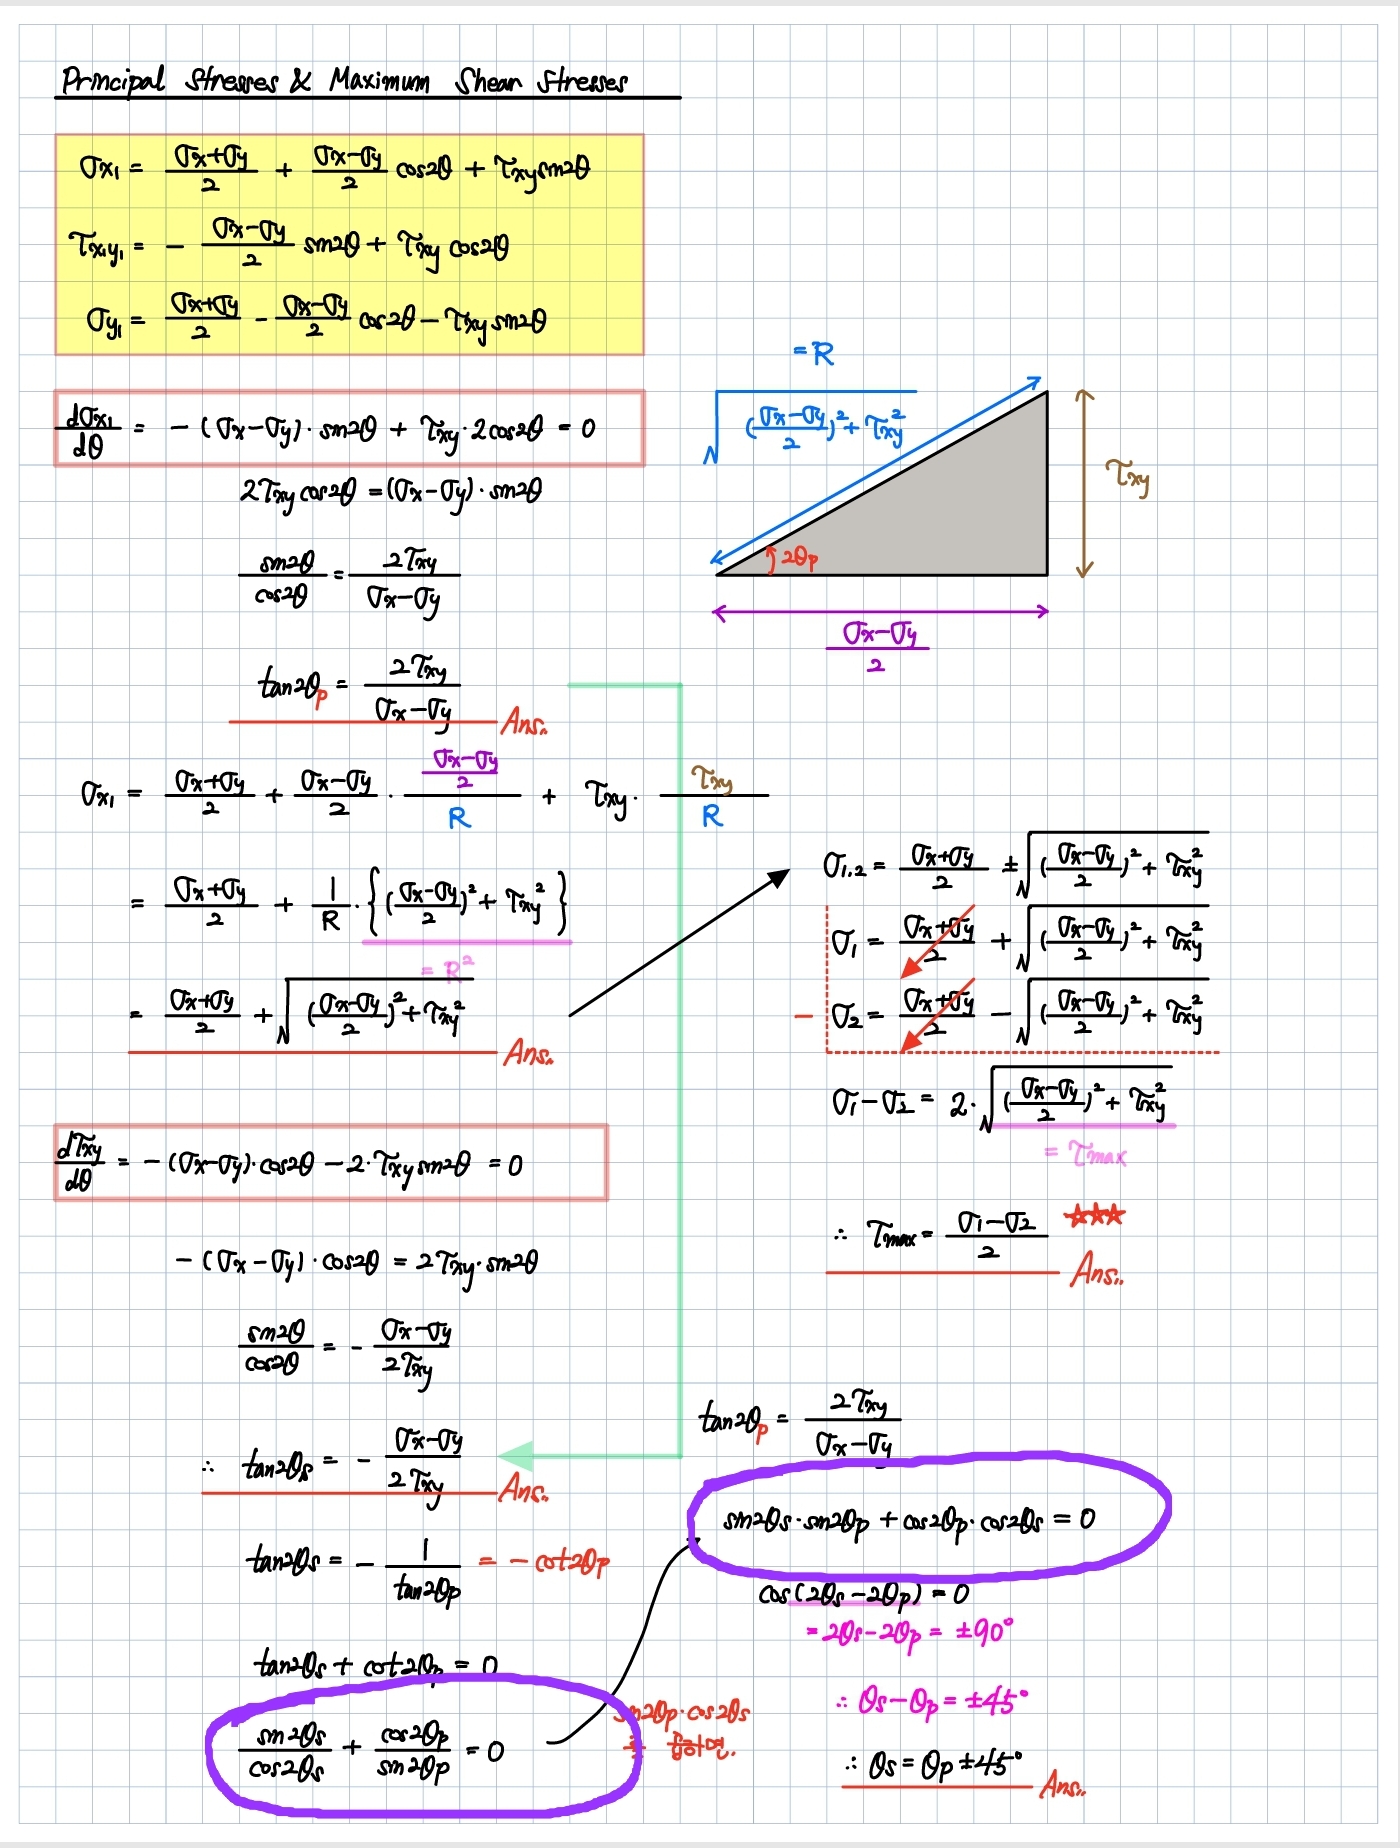 Principal Stresses & Maximum Shear Stresses
σx₁ = (σx+σy)/2 + (σx−σy)/2 cos2θ + τxy sin2θ
τx₁y₁ = − (σx−σy)/2 sin2θ + τxy cos2θ
σy₁ = (σx+σy)/2 − (σx−σy)/2 cos2θ − τxy sin2θ
dσx₁/dθ = −(σx−σy)·sin2θ + τxy·2cos2θ = 0
2τxy cos2θ = (σx−σy)·sin2θ
sin2θ/cos2θ = 2τxy/(σx−σy)
tan2θp = 2τxy/(σx−σy) Ans..
= R
√(((σx−σy)/2)² + τxy²)
τxy
2θp
(σx−σy)/2
σx₁ = (σx+σy)/2 + (σx−σy)/2 · ((σx−σy)/2)/R + τxy · τxy/R
= (σx+σy)/2 + 1/R · {((σx−σy)/2)² + τxy²}
= R²
= (σx+σy)/2 + √(((σx−σy)/2)² + τxy²) Ans..
σ1.2 = (σx+σy)/2 ± √(((σx−σy)/2)² + τxy²)
σ1 = (σx+σy)/2 + √(((σx−σy)/2)² + τxy²)
− σ2 = (σx+σy)/2 − √(((σx−σy)/2)² + τxy²)
σ1−σ2 = 2·√(((σx−σy)/2)² + τxy²)
= τmax
∴ τmax = (σ1−σ2)/2 ★★★ Ans..
dτxy/dθ = −(σx−σy)·cos2θ − 2·τxy sin2θ = 0
−(σx−σy)·cos2θ = 2τxy·sin2θ
sin2θ/cos2θ = − (σx−σy)/2τxy
∴ tan2θs = − (σx−σy)/2τxy Ans..
tan2θs = − 1/tan2θp = −cot2θp
tan2θs + cot2θp = 0
sin2θs/cos2θs + cos2θp/sin2θp = 0
sin2θp·cos2θs
tan2θp = 2τxy/(σx−σy)
sin2θs·sin2θp + cos2θp·cos2θs = 0
cos(2θs−2θp) = 0
= 2θs−2θp = ±90°
∴ θs−θp = ±45°
∴ θs = θp ±45° Ans..